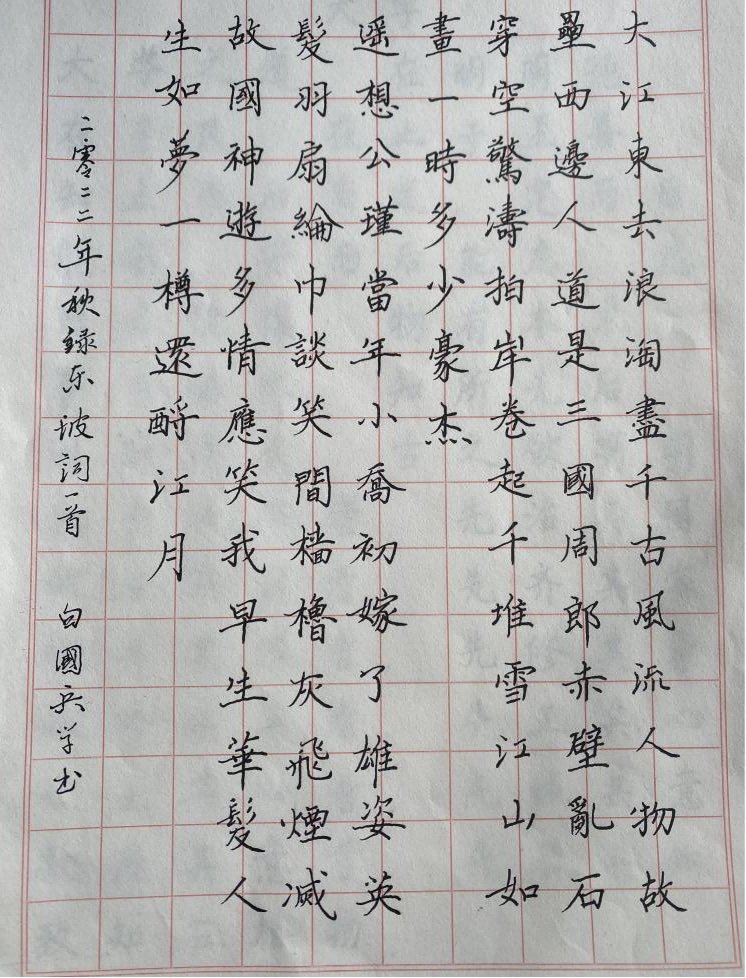 大江東去浪淘盡千古風流人物故
壘西邊人道是三國周郎赤壁亂石
穿空驚濤拍岸卷起千堆雪江山如
畫一時多少豪杰
遥想公瑾當年小喬初嫁了雄姿英
髮羽扇綸巾談笑間檣櫓灰飛煙滅
故國神遊多情應笑我早生華髮人
生如夢一樽還酹江月
二零二二年秋録东坡詞一首 白國兵学书